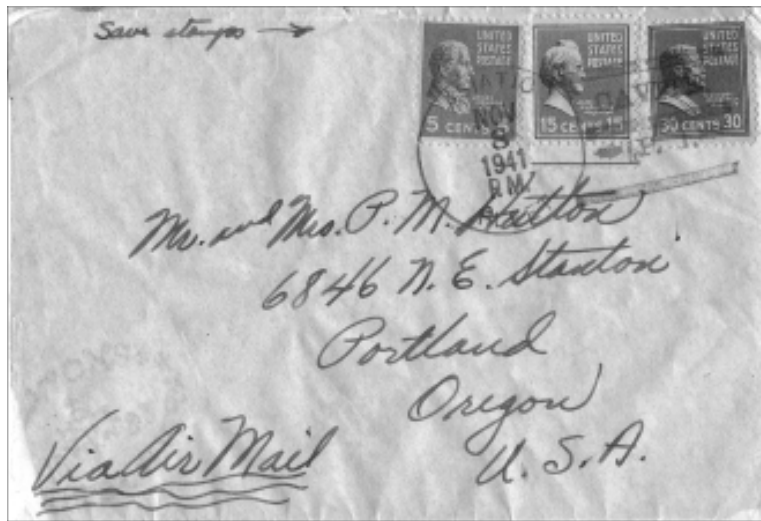 Save stamps →
UNITED STATES POSTAGE
5 CENTS
UNITED STATES POSTAGE
15 CENTS 15
UNITED STATES POSTAGE
30 CENTS 30
NOV
8
1941
P.M.
Mr. and Mrs. P. M. Hatton
6846 N. E. Stanton
Portland
Oregon
U. S. A.
Via Air Mail